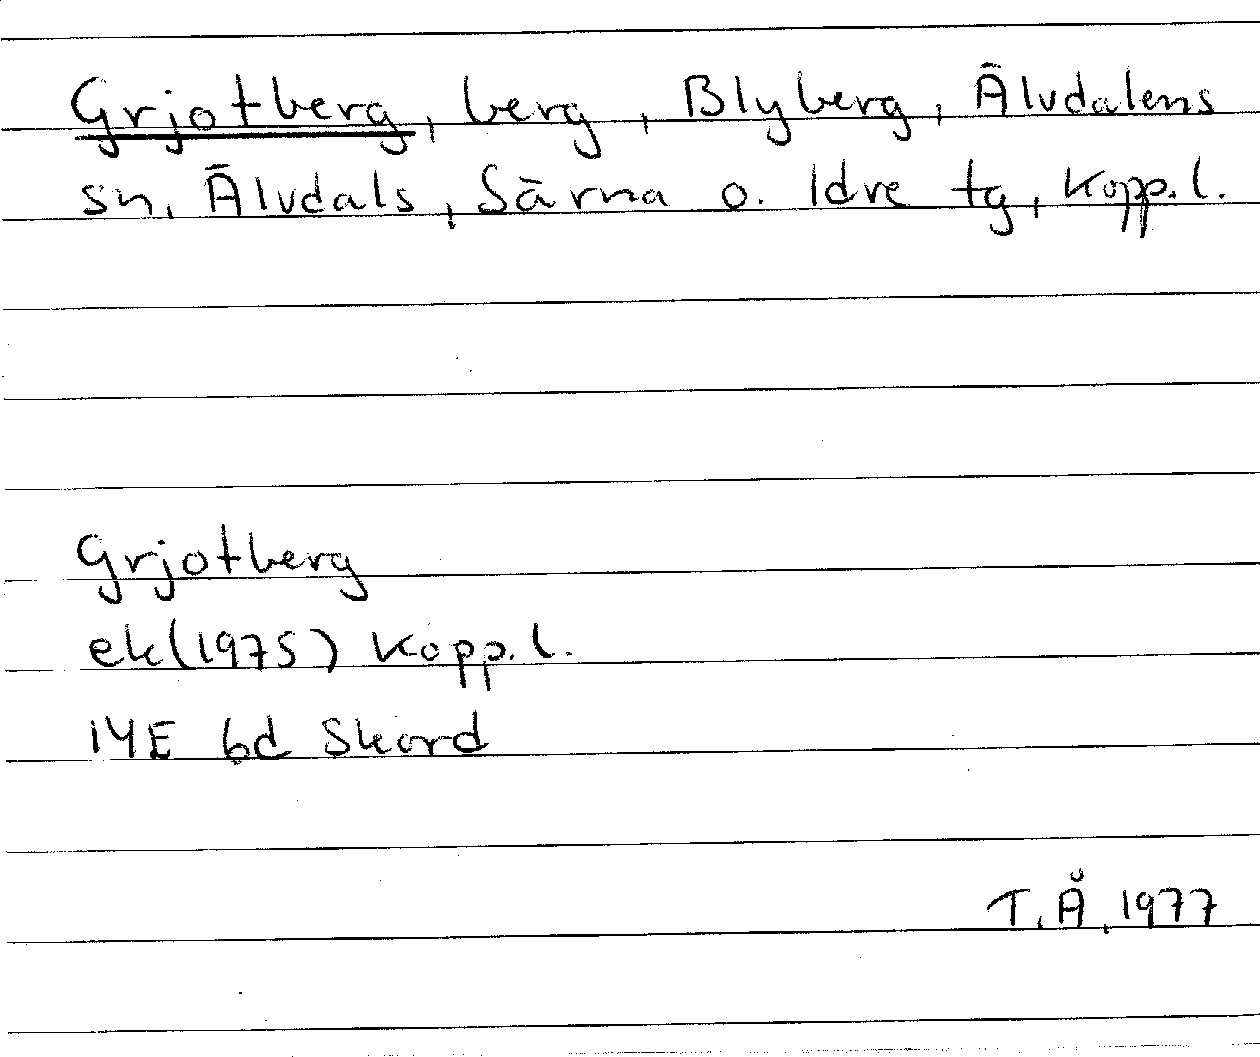 Grjotberg, berg, Blyberg, Älvdalens
sn, Älvdals, Särna o. Idre tg, Kopp.l.
Grjotberg
ek(1975) Kopp.l.
14E 6d Skord
T.Å. 1977